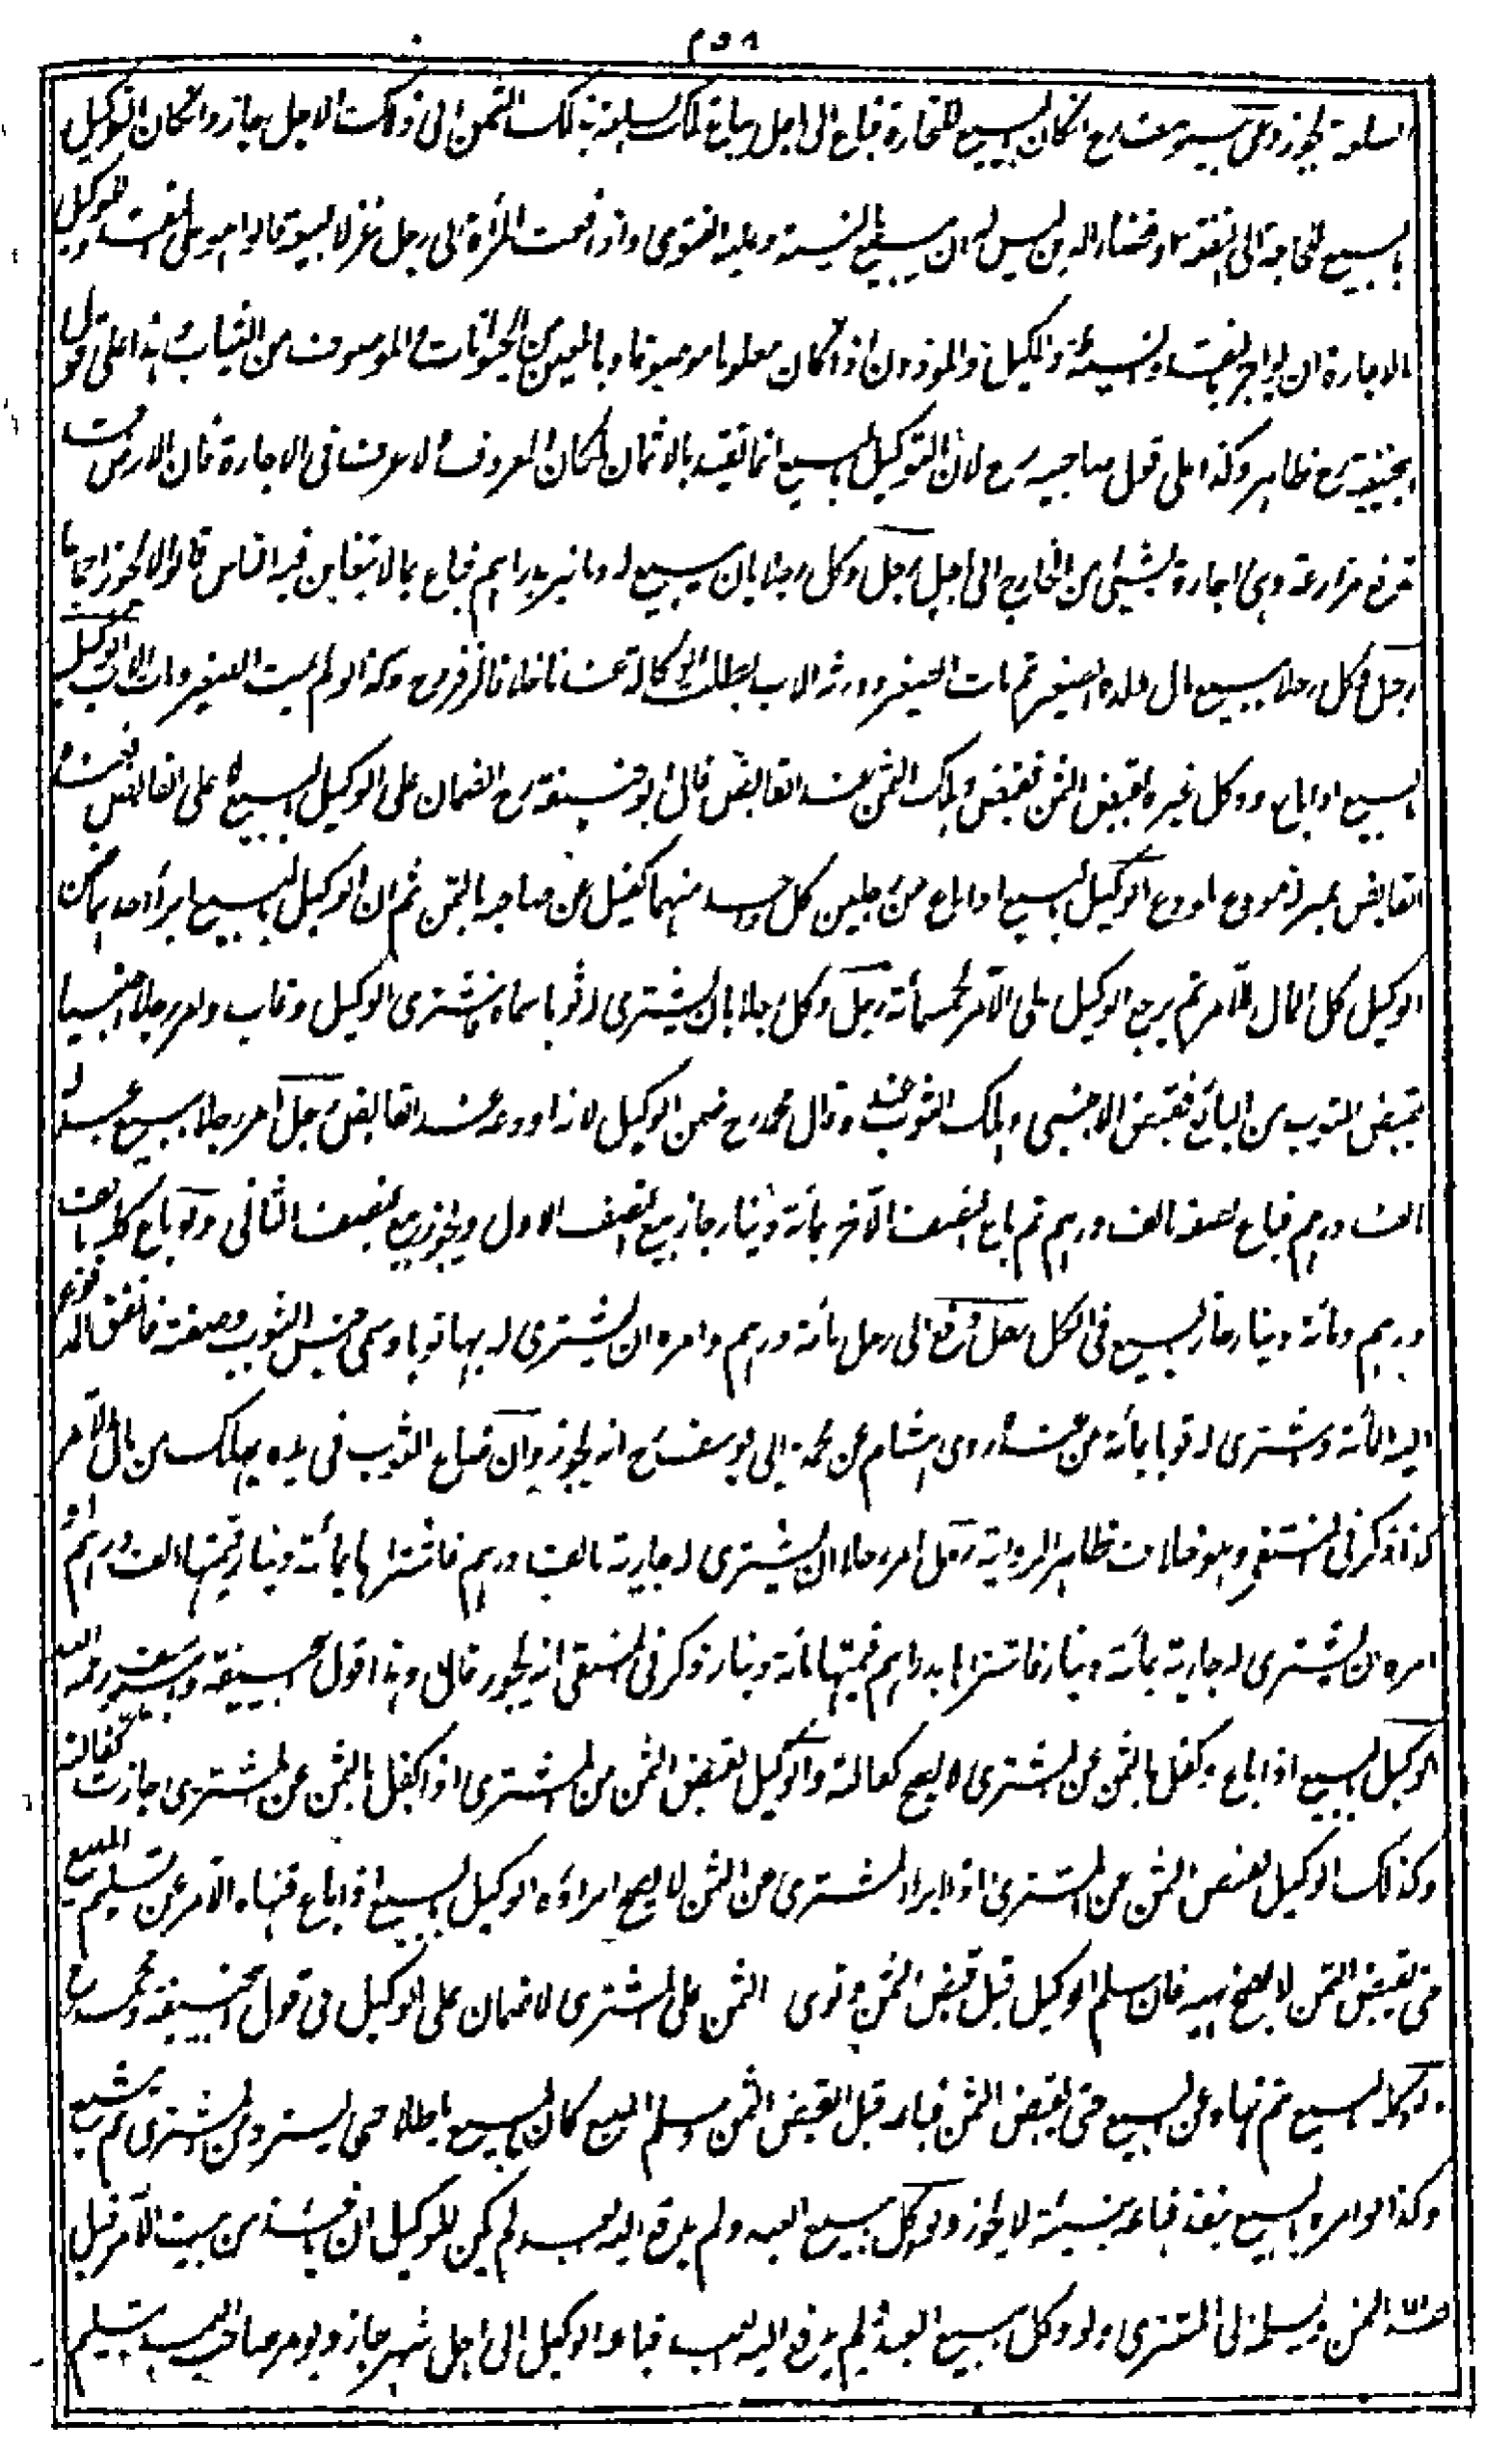 السلعة يجوز وعن ابي يوسف رح ان كان البيع للتجارة فباع الى اجل يباع تلك السلعة بذلك الثمن الى ذلك الاجل جاز وان كان التوكيل
بالبيع للحاجة الى النفقة او قضاء الدين ليس له ان يبيع بالنسيئة وعليه الفتوى واذا دفعت المرأة الى رجل غزلا ليبيعه قالوا هو على النقد الوكيل
بالاجارة ان يواجر بالنقد والنسيئة والمكيل والموزون اذا كان معلوما موصوفا وبالمعين من الحيوانات والموصوف من الثياب هذا على قول
ابيحنيفة رح ظاهر وكذا على قول صاحبيه رح لان التوكيل بالبيع انما تقيد بالاثمان لمكان المعروف ولا عرف في الاجارة فان الارض قد
تدفع مزارعة وهي اجارة بشيئ من الخارج الى اجل رجل وكل رجلا بان يبيع له دنانير بدراهم فباع بما لا يتغابن فيه الناس قالوا لا يجوز اجماعا
رجل وكل رجلا ببيع مال ولده الصغير ثم مات الصغير وورثه الاب بطلت الوكالة عندنا خلافا لزفر رح وكذا لو لم يمت الصغير ومات الاب الوكيل
بالبيع اذا باع ووكل غيره بقبض الثمن فقبض وهلك الثمن عند القابض قال ابو حنيفة رح الضمان على الوكيل بالبيع لا على القابض
القابض بمنزلة مودع اودع الوكيل بالبيع اذا باع من رجلين كل واحد منهما كفيل عن صاحبه بالثمن ثم ان الوكيل بالبيع ابرأ احدهما ضمن
الوكيل كل المال للآمر ثم يرجع الوكيل على الآخر بخمسمائة رجل وكل رجلا بان يشتري له ثوبا سماه فاشترى الوكيل وغاب وامر رجلا اجنبيا
بقبض الثوب من البائع فقبض الاجنبي وهلك الثوب عنده قال محمد رح ضمن الوكيل لانه اودعه عند القابض رجل امر رجلا ببيع عبد له
الف درهم فباع نصفه بالف درهم ثم باع النصف الآخر بمائة دينار جاز بيع النصف الاول ويجوز بيع النصف الثاني ولو باع كله بالف
درهم ومائة دينار جاز البيع في الكل رجل دفع الى رجل مائة درهم وامره ان يشتري له بها ثوبا وسمى جنس الثوب وصفته فانفق المدفوع
اليه المائة واشترى له ثوبا بمائة من عنده روى هشام عن محمد عن ابي يوسف رح انه يجوز وان ضاع الثوب في يده يهلك من مال الآمر
كذا ذكر في المنتقى وهو خلاف ظاهر الرواية رجل امر رجلا ان يشتري له جارية بالف درهم فاشتراها بمائة دينار قيمتها الف درهم او
امره ان يشتري له جارية بمائة دينار فاشتراها بدراهم قيمتها مائة دينار ذكر في المنتقى انه يجوز قال وهذا قول ابيحنيفة وابي يوسف رحمهما الله
الوكيل بالبيع اذا باع وكفل بالثمن عن المشتري لا يصح كفالته والوكيل بقبض الثمن من المشتري اذا كفل بالثمن عن المشتري جازت كفالته
وكذلك الوكيل بقبض الثمن من المشتري اذا ابرأ المشتري من الثمن لا يصح ابراؤه الوكيل بالبيع اذا باع فنهاه الآمر عن تسليم المبيع
حتى يقبض الثمن لا يصح نهيه فان سلم الوكيل قبل قبض الثمن وتوى الثمن على المشتري لا ضمان على الوكيل في قول ابيحنيفة ومحمد رح
ولو وكله بالبيع ثم نهاه عن البيع حتى يقبض الثمن فباعه قبل القبض الثمن وسلم المبيع كان البيع باطلا حتى يسترد من المشتري ثم يبيع
وكذا لو امره بالبيع بنقد فباعه بنسيئة لا يجوز ولو وكل ببيع العبد ولم يدفع اليه العبد لم يكن للوكيل ان يأخذ من بيت الآمر قبل
نقد الثمن ويسلمه الى المشتري ولو وكل ببيع العبد ولم يدفع اليه العبد فباعه الوكيل الى اجل شهر جاز ويؤمر صاحب العبد بتسليم